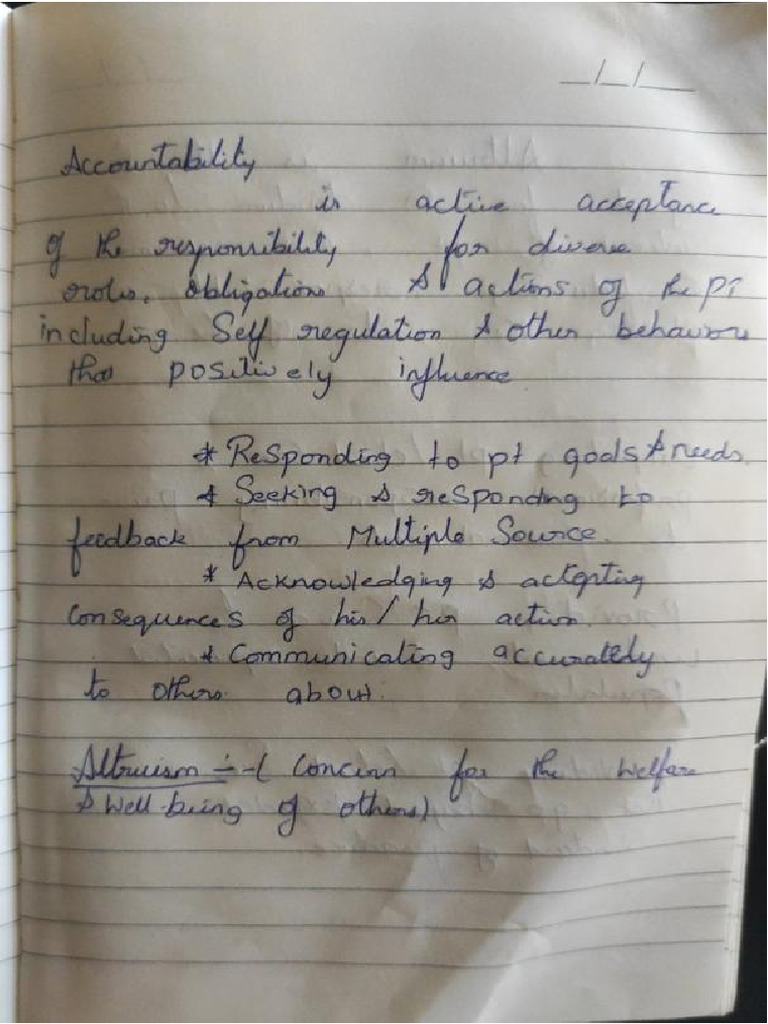 Accountability
is active acceptance
of the responsibility for diverse
roles, obligations & actions of the PT
including Self regulation & other behaviors
that positively influence
* Responding to pt goals & needs.
* Seeking & responding to
feedback from Multiple Source.
* Acknowledging & accepting
Consequences of his/her action.
* Communicating accurately
to others about.
Altruism :- ( Concern for the welfare
& well-being of others)